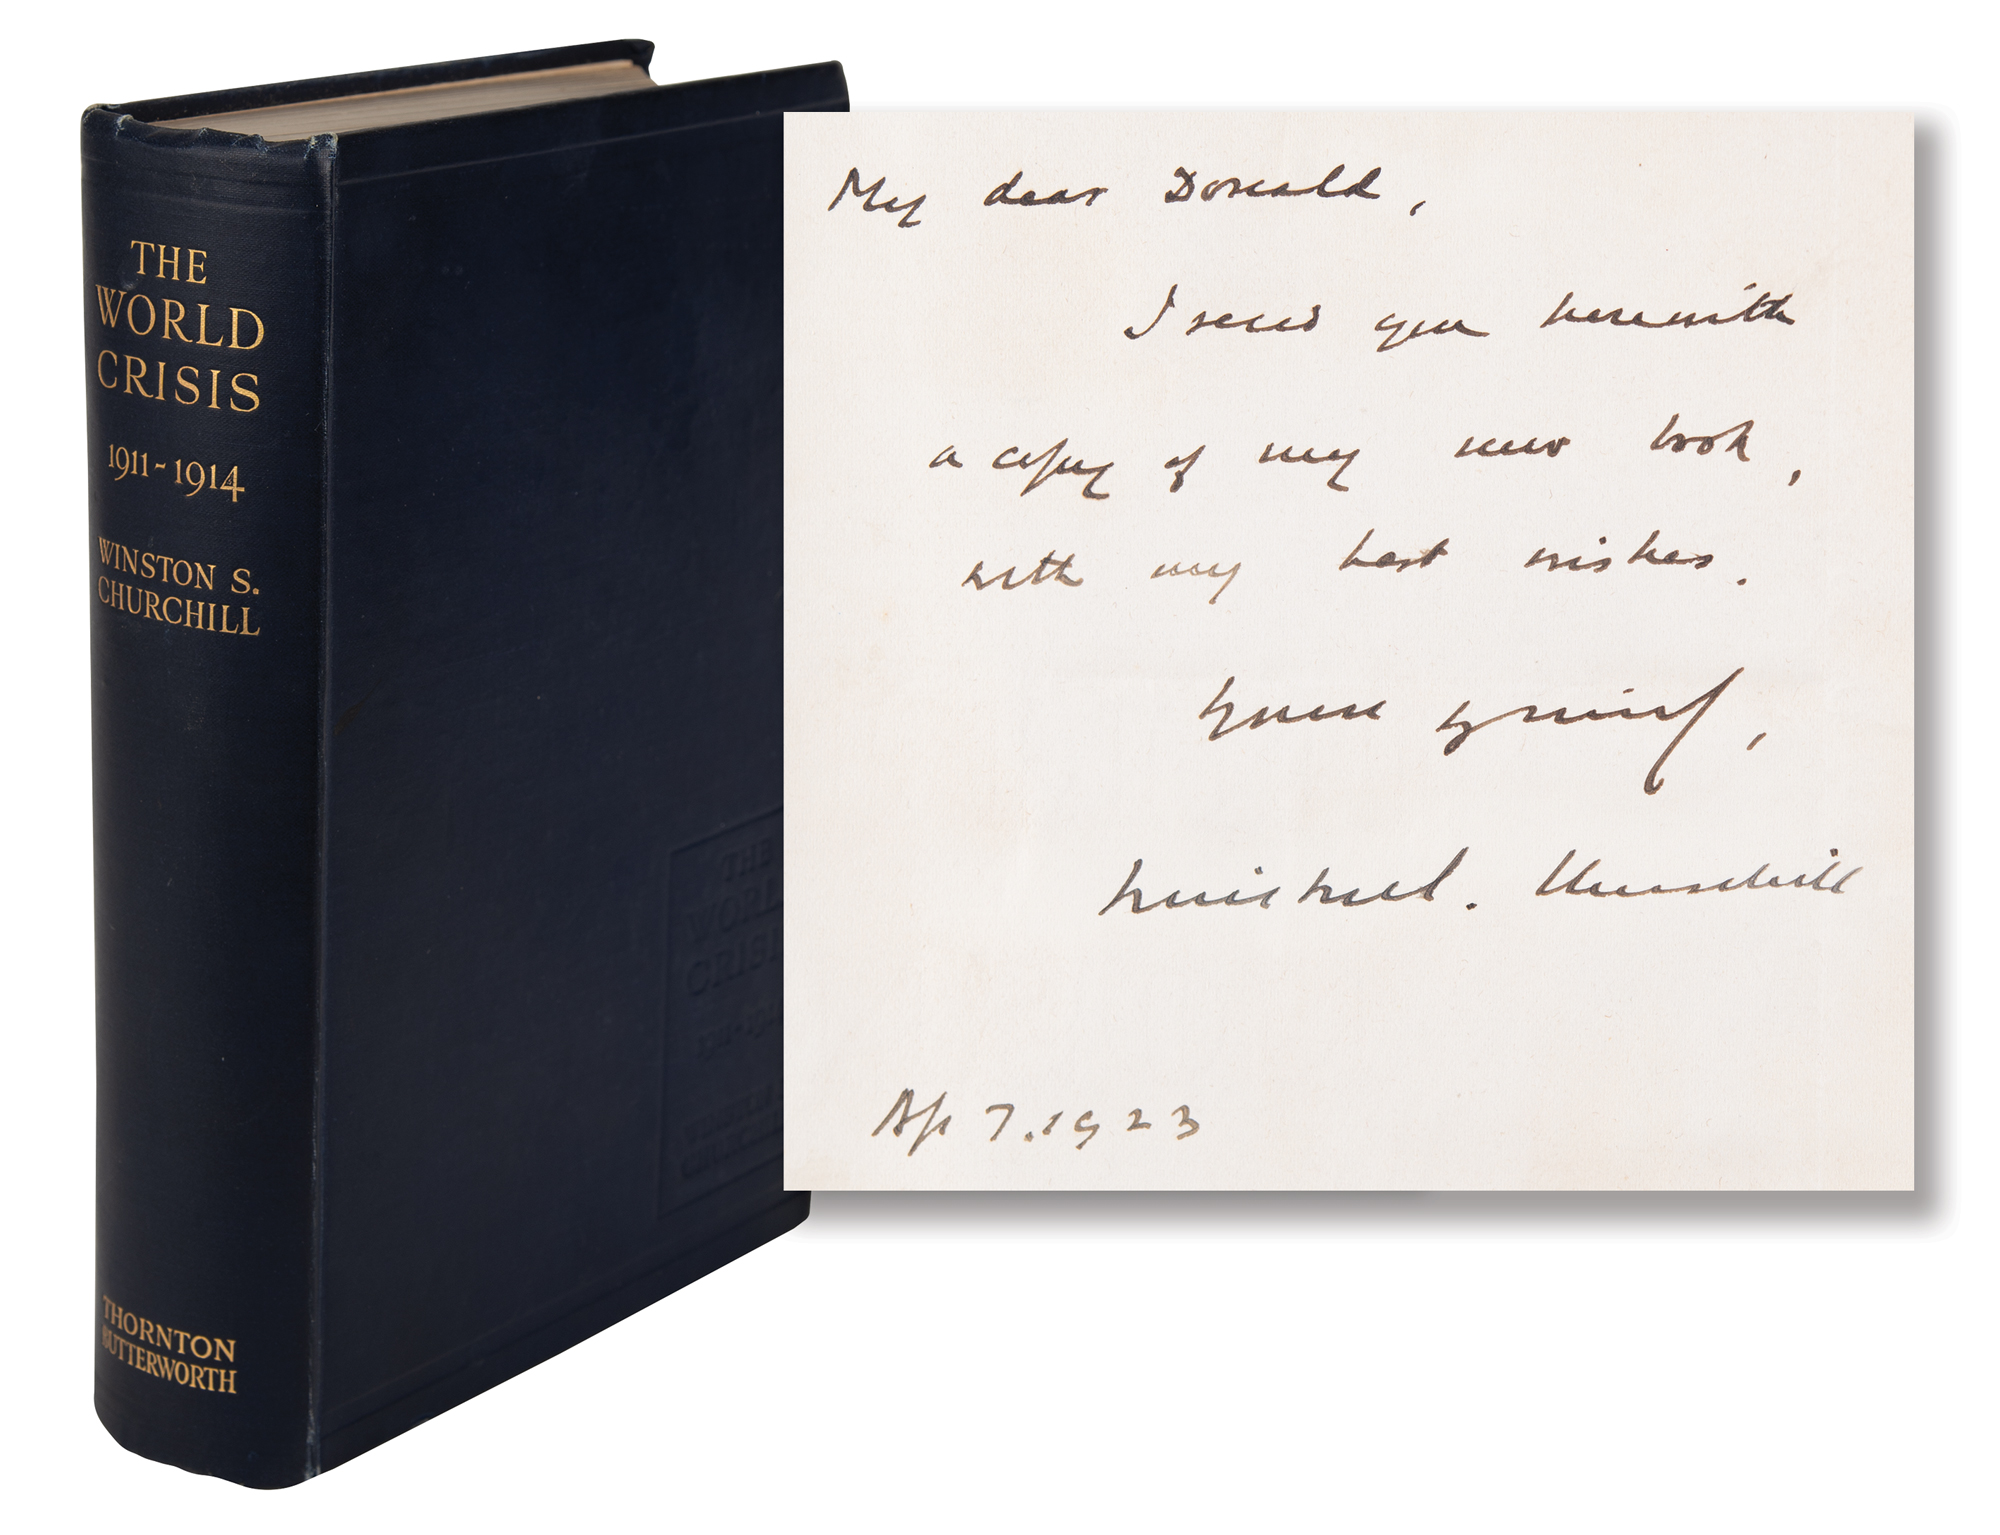 THE
WORLD
CRISIS
1911-1914
WINSTON S.
CHURCHILL
THORNTON
BUTTERWORTH
THE
WORL
CRISI
My dear Donald,
I send you herewith
a copy of my new book,
with my best wishes.
Yours sincerely,
Winston S. Churchill
Ap 7. 1923